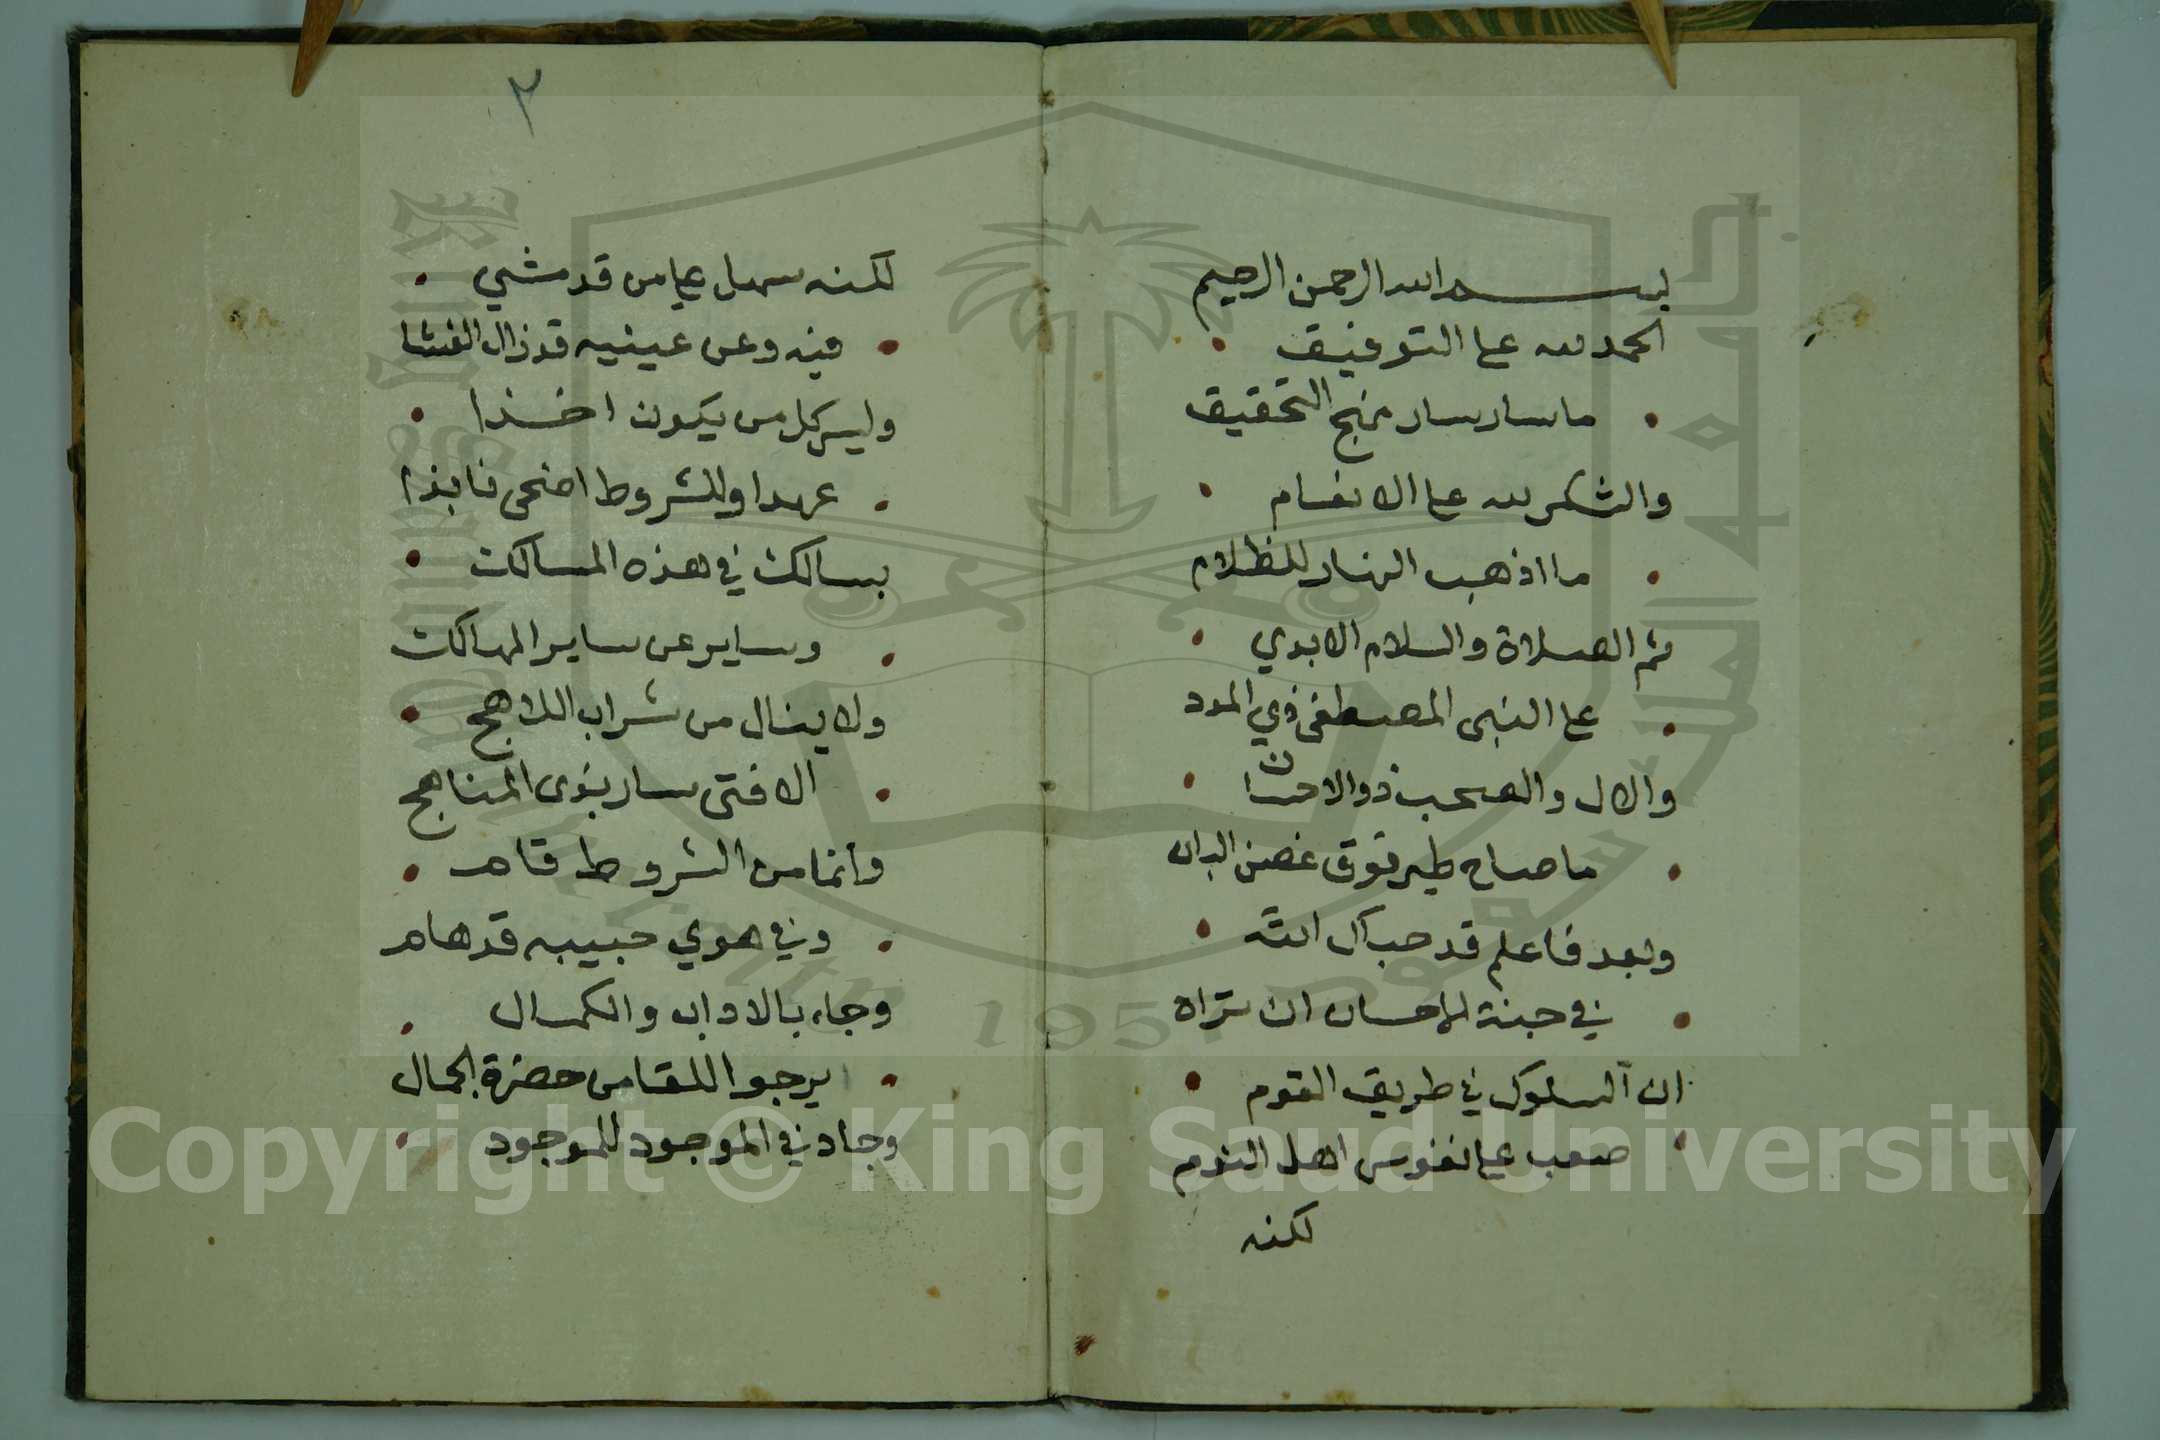 بسم الله الرحمن الرحيم
الحمد لله على التوفيق
ما سار سار منهج التحقيق
والشكر لله على الانعام
ما اذهب النهار للظلام
ثم الصلاة والسلام الابدي
على النبى المصطفى ذي المدد
والال والصحب ذو الاحسان
ما صاح طير فوق غصن البان
وبعد فاعلم قد حباك الله
في جنة الاحسان ان تراه
ان السلوك في طريق القوم
صعب على نفوس اهل النوم
لكنه
٢
لكنه سهل على من قد مشي
فيه وعن عينيه قد زال الغشا
وليس كل من يكون اخذا
عهدا وللشروط اضحى نابذا
بسالك في هذه المسالك
وساير عن ساير المهالك
ولا ينال من شراب اللاهج
الا فتى سار بذى المناهج
وانما من الشروط قام
وفي هوي حبيبه قد هام
وجاء بالاداب والكمال
يرجوا اللقا من حضرة الجمال
وجاد في الموجود للموجود
جامعة الملك سعود
King Saud University
1957
Copyright © King Saud University